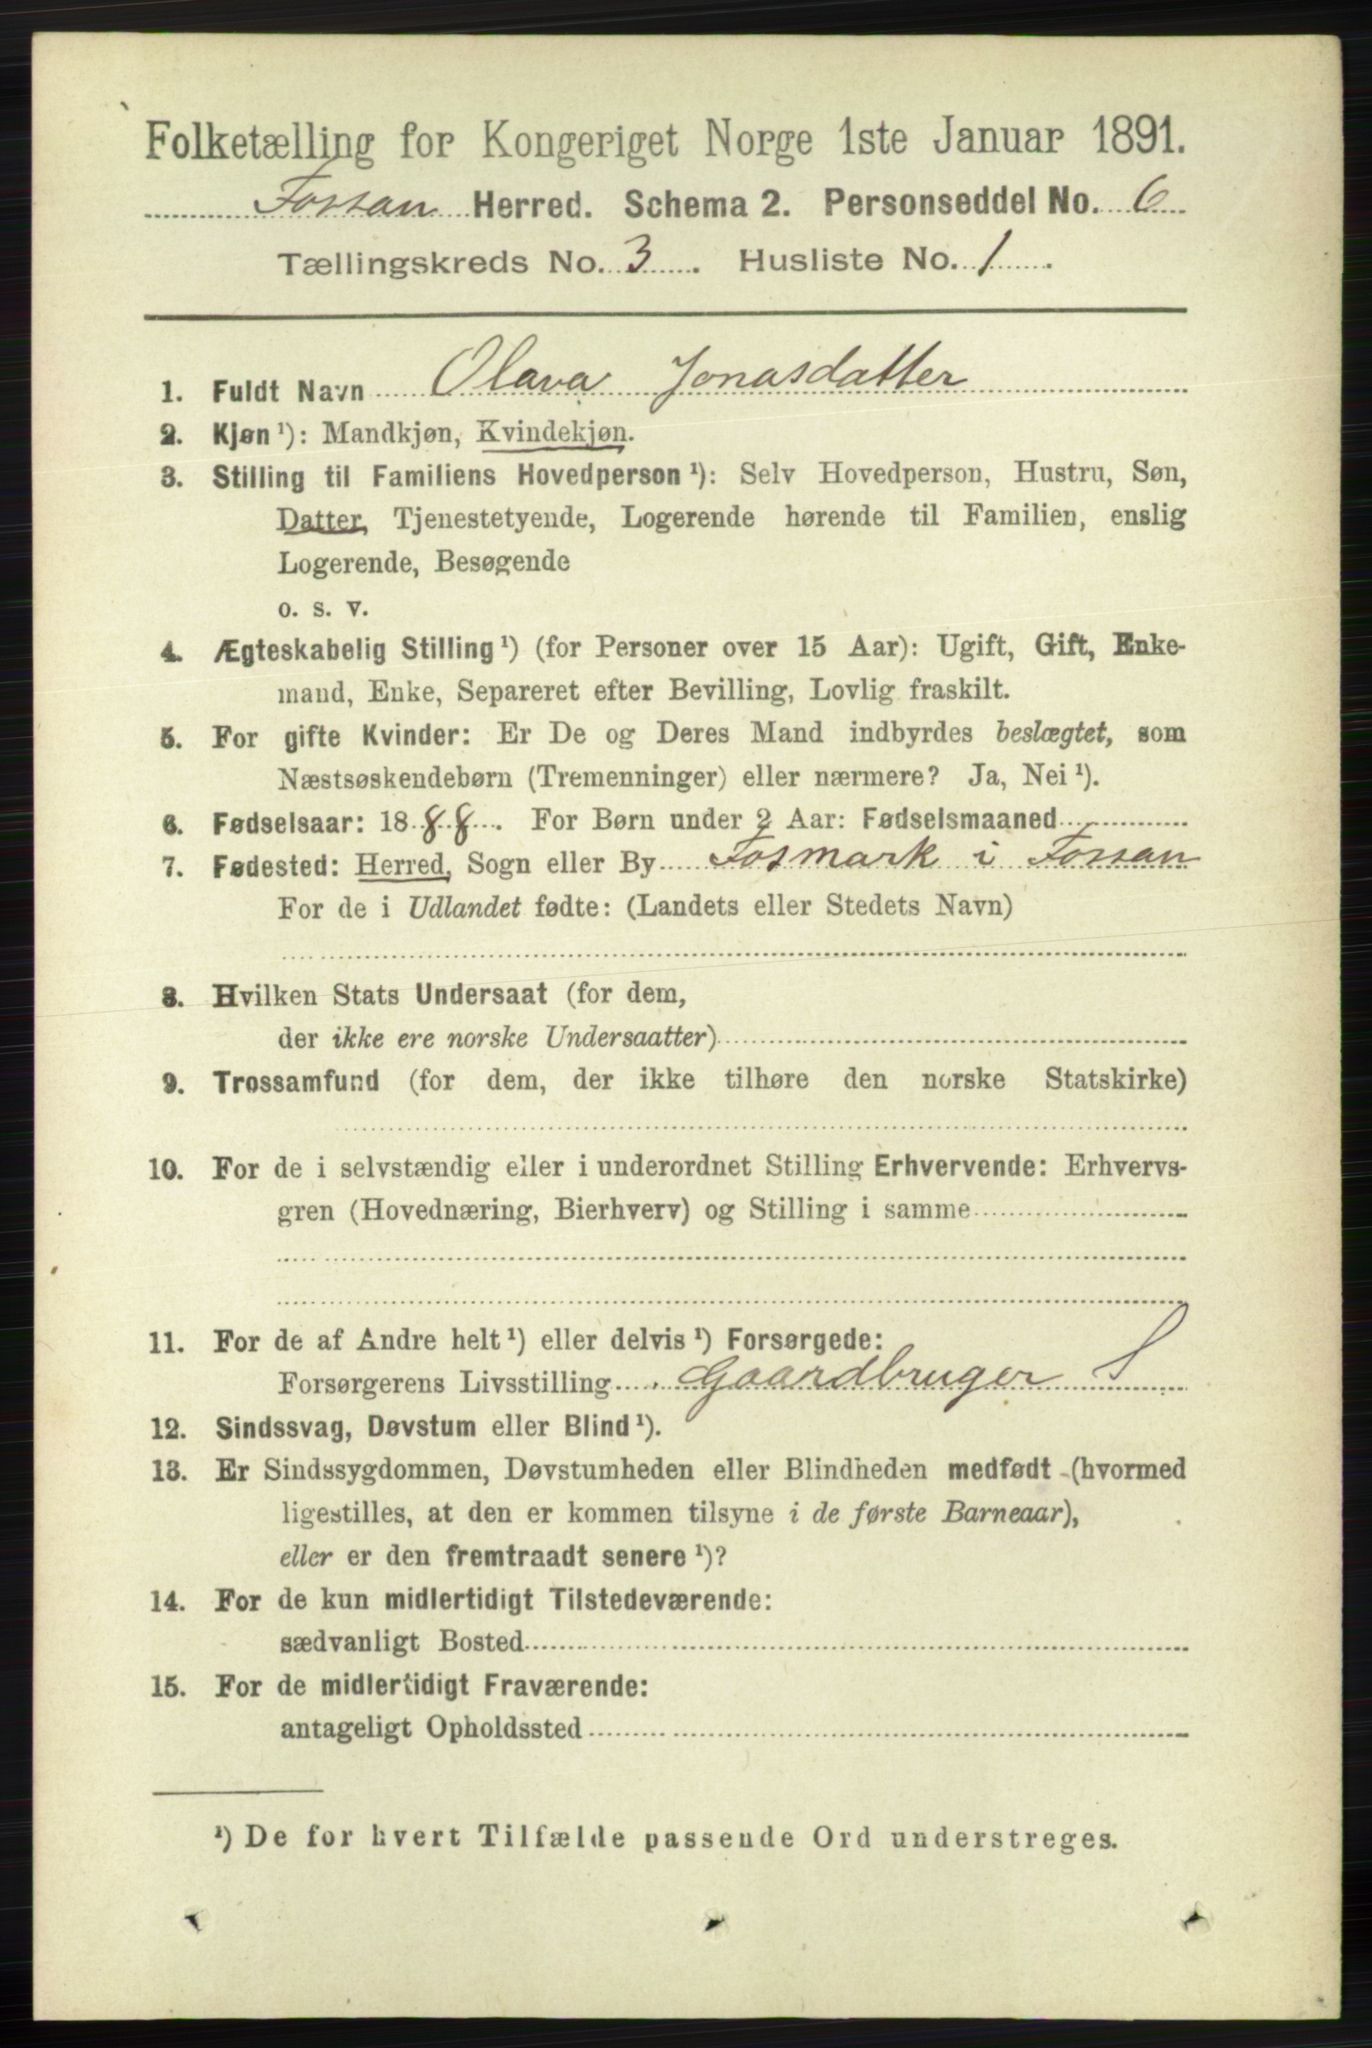 Folketælling for Kongeriget Norge 1ste Januar 1891.
Fossan Herred. Schema 2. Personseddel No. 6
Tællingskreds No. 3. Husliste No. 1.
1. Fuldt Navn Olava Jonasdatter
2. Kjøn ¹): Mandkjøn, Kvindekjøn.
3. Stilling til Familiens Hovedperson ¹): Selv Hovedperson, Hustru, Søn,
Datter, Tjenestetyende, Logerende hørende til Familien, enslig
Logerende, Besøgende
o. s. v.
4. Ægteskabelig Stilling ¹) (for Personer over 15 Aar): Ugift, Gift, Enke-
mand, Enke, Separeret efter Bevilling, Lovlig fraskilt.
5. For gifte Kvinder: Er De og Deres Mand indbyrdes beslægtet, som
Næstsøskendebørn (Tremenninger) eller nærmere? Ja, Nei ¹).
6. Fødselsaar: 1888. For Børn under 2 Aar: Fødselsmaaned
7. Fødested: Herred, Sogn eller By Fosmark i Fossan
For de i Udlandet fødte: (Landets eller Stedets Navn)
8. Hvilken Stats Undersaat (for dem,
der ikke ere norske Undersaatter)
9. Trossamfund (for dem, der ikke tilhøre den norske Statskirke)
10. For de i selvstændig eller i underordnet Stilling Erhvervende: Erhvervs-
gren (Hovednæring, Bierhverv) og Stilling i samme
11. For de af Andre helt ¹) eller delvis ¹) Forsørgede:
Forsørgerens Livsstilling Gaardbruger S
12. Sindssvag, Døvstum eller Blind ¹).
13. Er Sindssygdommen, Døvstumheden eller Blindheden medfødt (hvormed
ligestilles, at den er kommen tilsyne i de første Barneaar),
eller er den fremtraadt senere ¹)?
14. For de kun midlertidigt Tilstedeværende:
sædvanligt Bosted
15. For de midlertidigt Fraværende:
antageligt Opholdssted
¹) De for hvert Tilfælde passende Ord understreges.